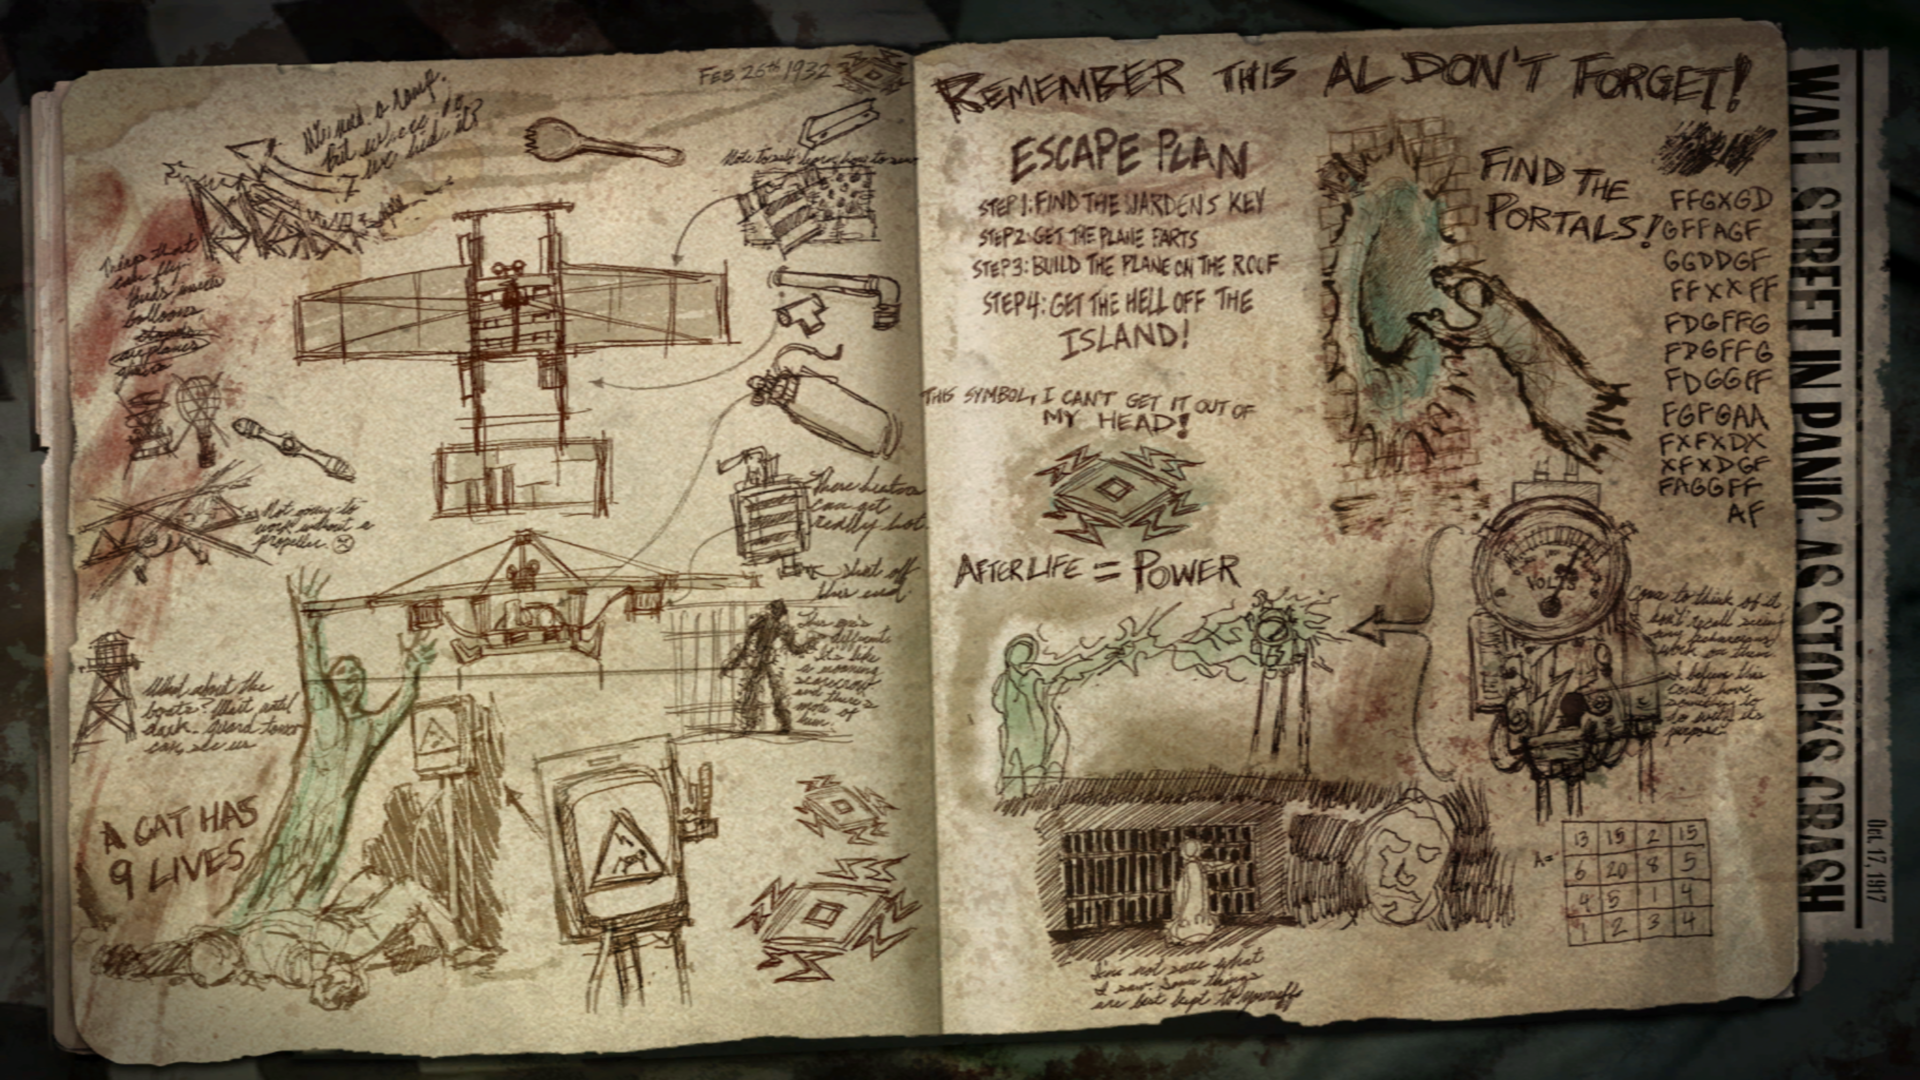 FEB 26TH 1932
We need a ramp,
but where do
we hid it?
Note to self learn how to sew
Things that
can fly-
Birds insects
balloons
airplanes
Not going to
work without a
propeller.
These heaters
can get
really hot.
Shut off
This guy's
different
It's like
a
scarecrow
and there's
more of
him.
What about the
boats? Wait until
dark. guard tower
can see us
A CAT HAS
9 LIVES
REMEMBER THIS AL DON'T FORGET!
ESCAPE PLAN
STEP 1: FIND THE WARDENS KEY
STEP 2: GET THE PLANE PARTS
STEP 3: BUILD THE PLANE ON THE ROOF
STEP 4: GET THE HELL OFF THE
ISLAND!
FIND THE
PORTALS!
FFGXGD
GFFAGF
GGDDGF
FFXXFF
FDGFFG
FDGFFG
FDGGFF
FGFGAA
FXFXDX
XFXDGF
FAGGFF
AF
THIS SYMBOL, I CAN'T GET IT OUT OF
MY HEAD!
AFTERLIFE = POWER
VOLTS
Come to think of it
don't recall seeing
any
work on them.
I believe this
could have
something to
do with its
purpose.
A=
13 15 2 15
6 20 8 5
4 5 1 4
1 2 3 4
I'm not sure what
I saw. Some things
are best kept to yourself
WALL STREET IN PANIC AS STOCKS CRASH
Oct. 17, 1917